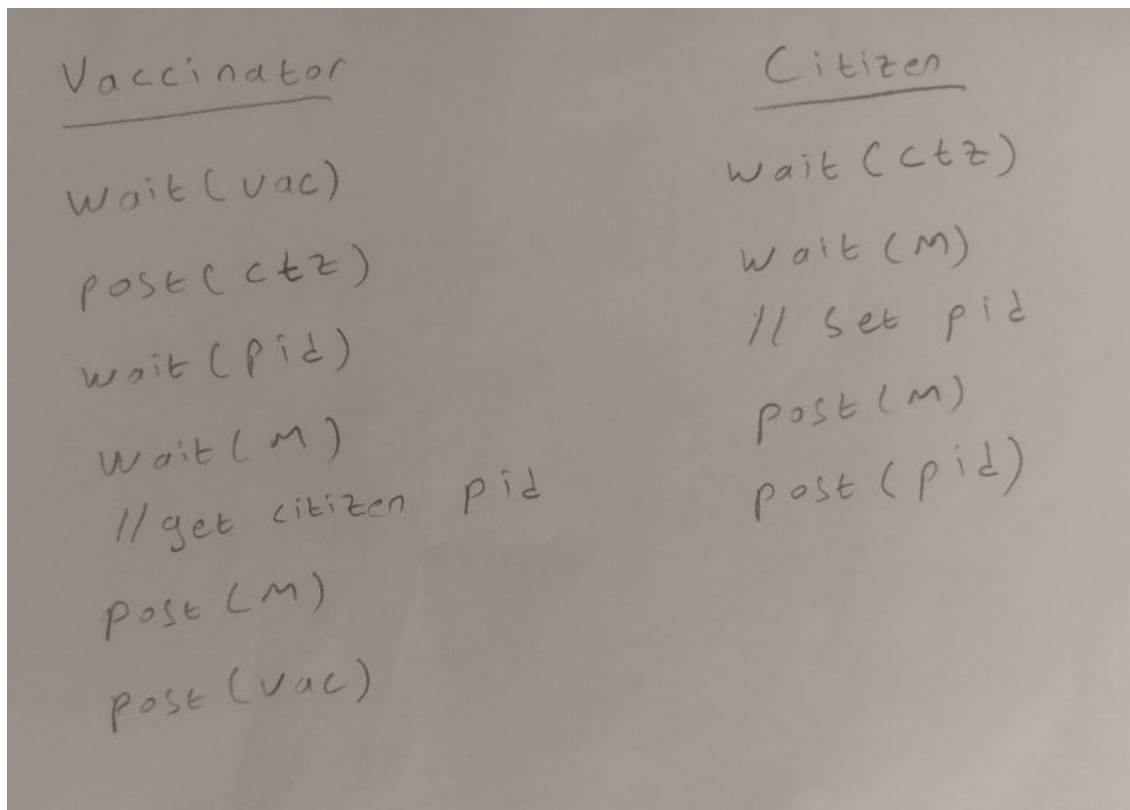 Vaccinator
wait(vac)
post(ctz)
wait(pid)
wait(m)
//get citizen pid
post(m)
post(vac)
Citizen
wait(ctz)
wait(m)
// set pid
post(m)
post(pid)